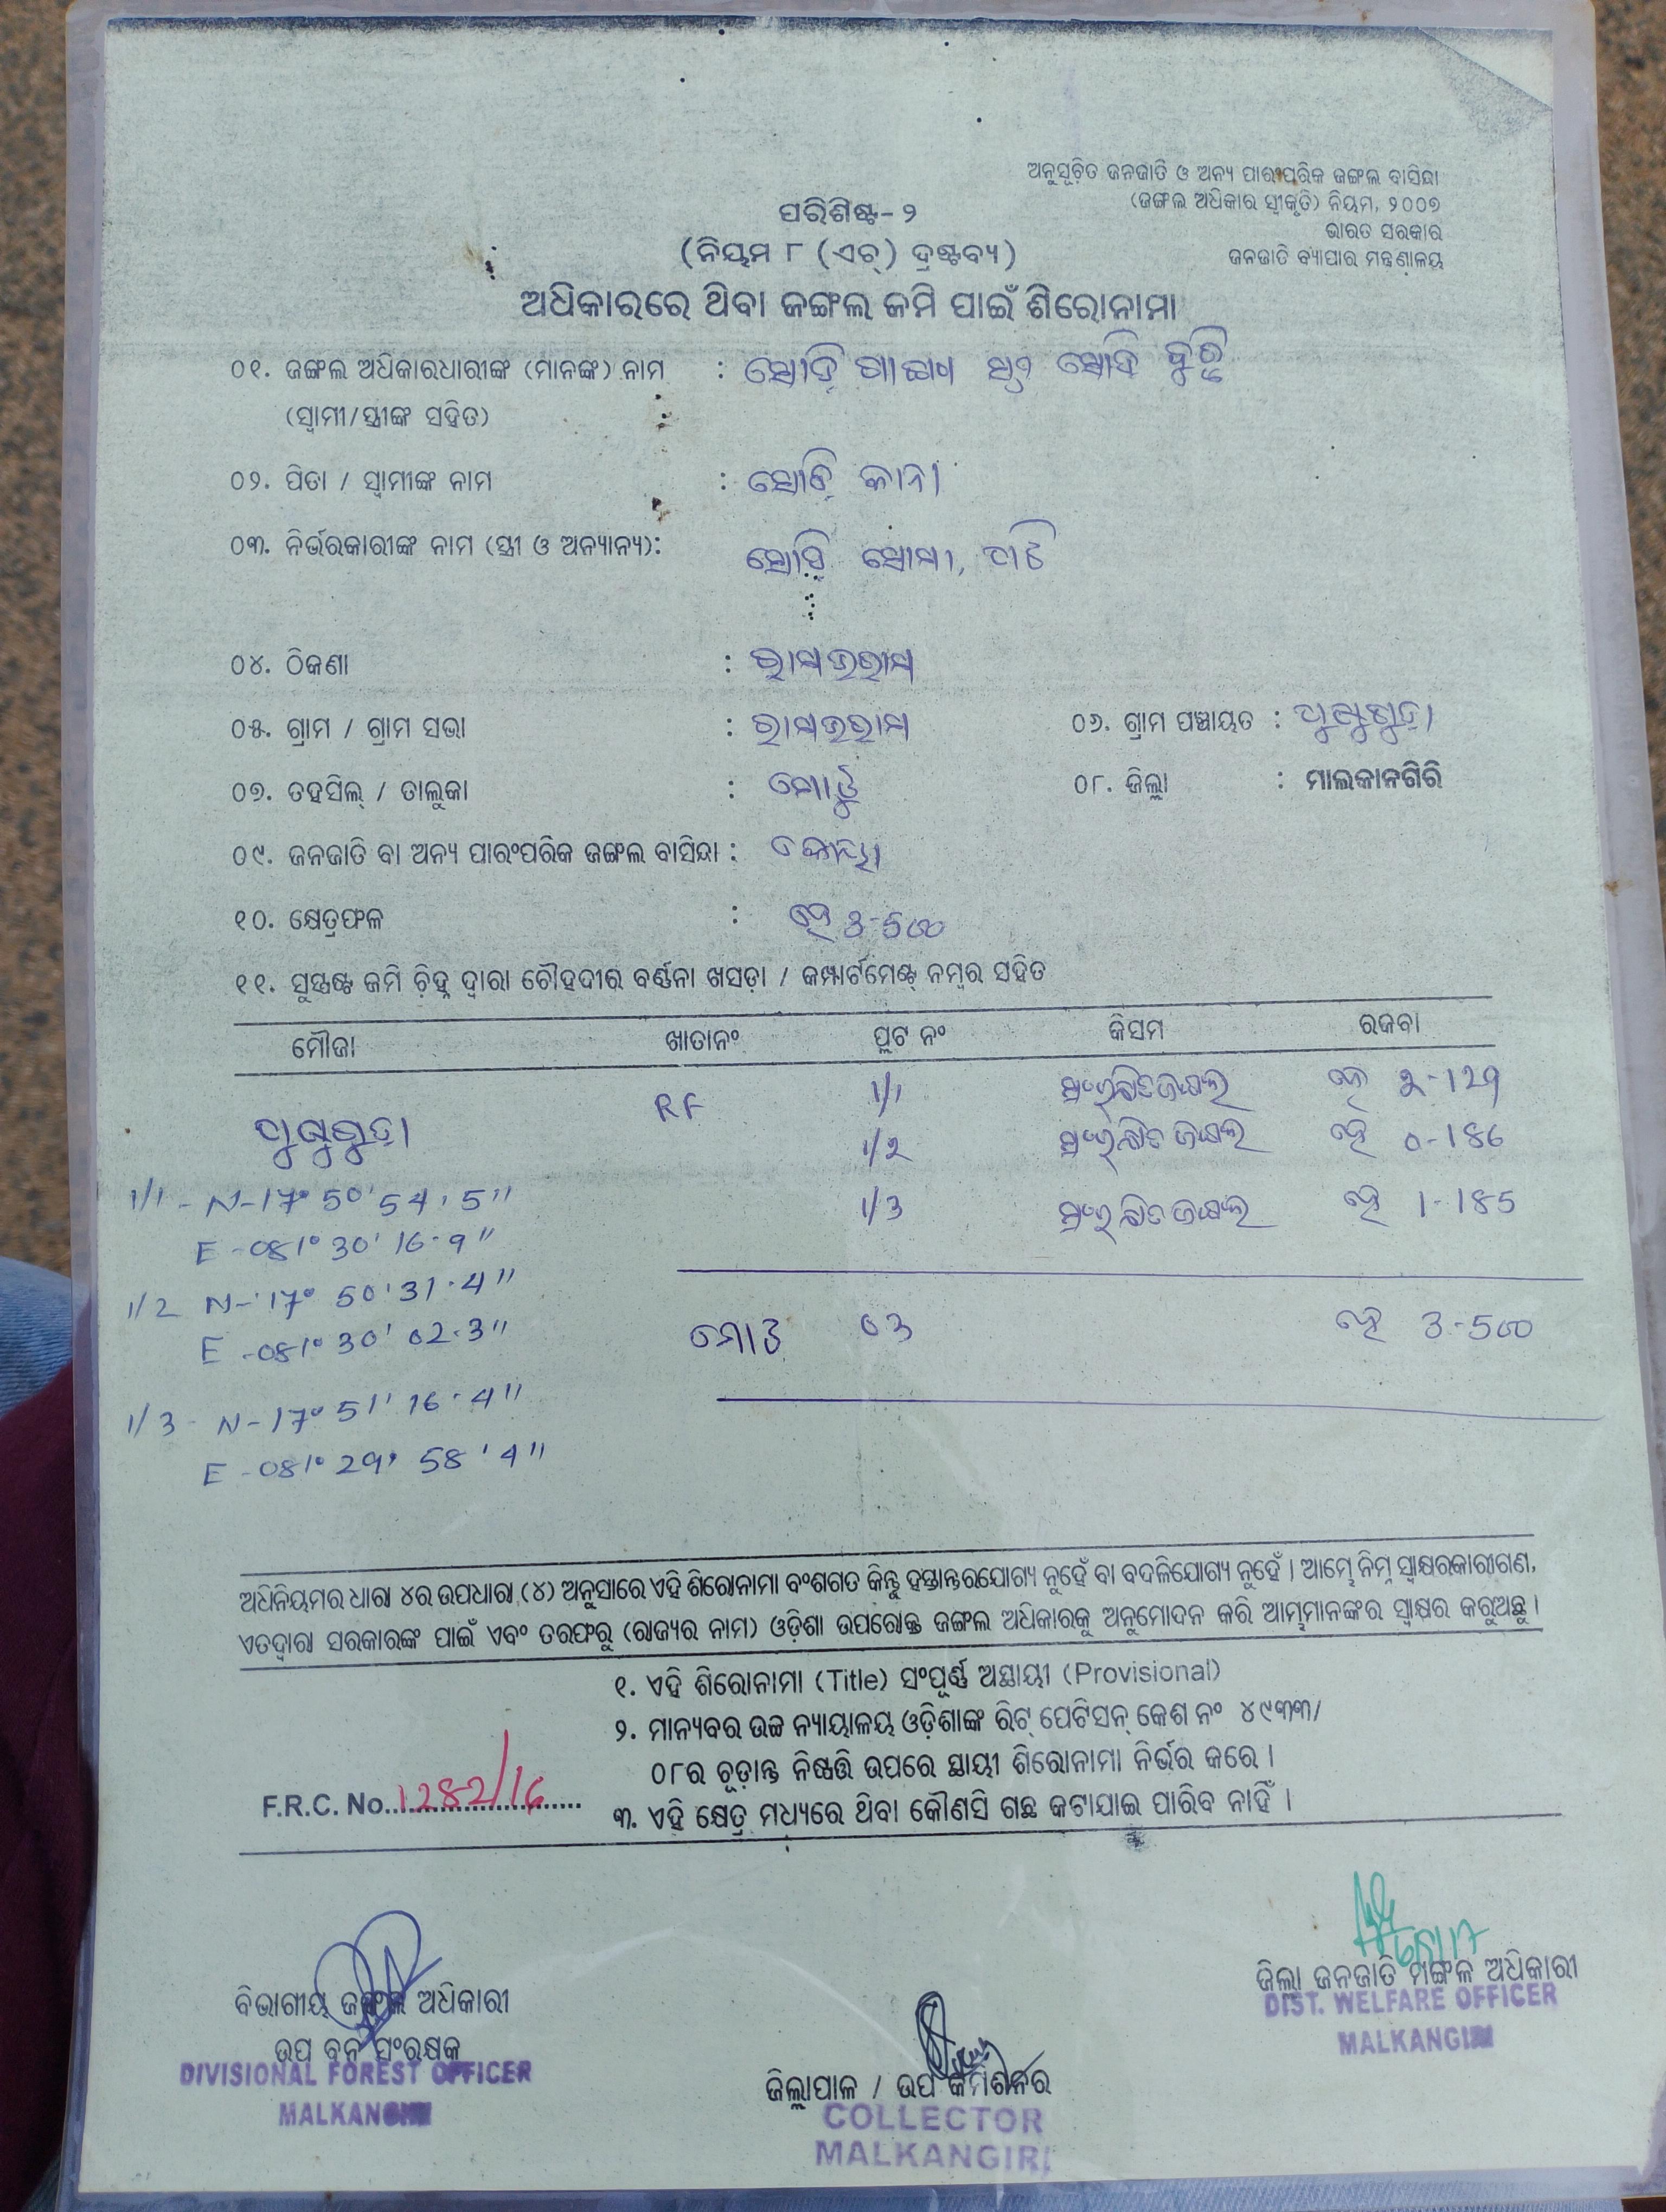 ଅନୁସୂଚିତ ଜନଜାତି ଓ ଅନ୍ୟ ପାରଂପରିକ ଜଙ୍ଗଲ ବାସିନ୍ଦା
(ଜଙ୍ଗଲ ଅଧିକାର ସ୍ୱୀକୃତି) ନିୟମ, ୨୦୦୭
ଭାରତ ସରକାର
ଜନଜାତି ବ୍ୟାପାର ମନ୍ତ୍ରଣାଳୟ
ପରିଶିଷ୍ଟ-୨
(ନିୟମ ୮ (ଏଚ୍) ଦ୍ରଷ୍ଟବ୍ୟ)
ଅଧିକାରରେ ଥିବା ଜଙ୍ଗଲ ଜମି ପାଇଁ ଶିରୋନାମା
୦୧. ଜଙ୍ଗଲ ଅଧିକାରଧାରୀଙ୍କ (ମାନଙ୍କ) ନାମ :
(ସ୍ୱାମୀ/ସ୍ତ୍ରୀଙ୍କ ସହିତ)
୦୨. ପିତା / ସ୍ୱାମୀଙ୍କ ନାମ :
୦୩. ନିର୍ଭରକାରୀଙ୍କ ନାମ (ସ୍ତ୍ରୀ ଓ ଅନ୍ୟାନ୍ୟ):
୦୪. ଠିକଣା :
୦୫. ଗ୍ରାମ / ଗ୍ରାମ ସଭା : ୦୬. ଗ୍ରାମ ପଞ୍ଚାୟତ :
୦୭. ତହସିଲ୍ / ତାଲୁକା : ମୋଟୁ ୦୮. ଜିଲ୍ଲା : ମାଲକାନଗିରି
୦୯. ଜନଜାତି ବା ଅନ୍ୟ ପାରଂପରିକ ଜଙ୍ଗଲ ବାସିନ୍ଦା : କୋୟା
୧୦. କ୍ଷେତ୍ରଫଳ : ହେ 3-500
୧୧. ସୁସ୍ପଷ୍ଟ ଜମି ଚିହ୍ନ ଦ୍ୱାରା ଚୌହଦୀର ବର୍ଣ୍ଣନା ଖସଡ଼ା / କମ୍ପାର୍ଟମେଣ୍ଟ୍ ନମ୍ବର ସହିତ
ମୌଜା ଖାତାନଂ ପ୍ଲଟ ନଂ କିସମ ରକବା
RF 1/1 ସଂରକ୍ଷିତ ଜଙ୍ଗଲ ହେ 2-129
1/2 ସଂରକ୍ଷିତ ଜଙ୍ଗଲ ହେ 0-186
1/1 - N-17° 50' 54.5"
1/3 ସଂରକ୍ଷିତ ଜଙ୍ଗଲ ହେ 1-185
E -081° 30' 16.9"
1/2 N-17° 50' 31.4"
E -081° 30' 02.3"
ମୋଟ 03 ହେ 3-500
1/3 - N-17° 51' 16.4"
E -081° 29' 58.4"
ଅଧିନିୟମର ଧାରା ୪ର ଉପଧାରା (୪) ଅନୁସାରେ ଏହି ଶିରୋନାମା ବଂଶଗତ କିନ୍ତୁ ହସ୍ତାନ୍ତରଯୋଗ୍ୟ ନୁହେଁ ବା ବଦଳିଯୋଗ୍ୟ ନୁହେଁ । ଆମ୍ଭେ ନିମ୍ନ ସ୍ୱାକ୍ଷରକାରୀଗଣ,
ଏତଦ୍ୱାରା ସରକାରଙ୍କ ପାଇଁ ଏବଂ ତରଫରୁ (ରାଜ୍ୟର ନାମ) ଓଡ଼ିଶା ଉପରୋକ୍ତ ଜଙ୍ଗଲ ଅଧିକାରକୁ ଅନୁମୋଦନ କରି ଆମ୍ଭମାନଙ୍କର ସ୍ୱାକ୍ଷର କରୁଅଛୁ ।
୧. ଏହି ଶିରୋନାମା (Title) ସଂପୂର୍ଣ୍ଣ ଅସ୍ଥାୟୀ (Provisional)
୨. ମାନ୍ୟବର ଉଚ୍ଚ ନ୍ୟାୟାଳୟ ଓଡ଼ିଶାଙ୍କ ରିଟ୍ ପେଟିସନ୍ କେଶ ନଂ ୪୯୩୩/
୦୮ର ଚୂଡ଼ାନ୍ତ ନିଷ୍ପତ୍ତି ଉପରେ ସ୍ଥାୟୀ ଶିରୋନାମା ନିର୍ଭର କରେ ।
F.R.C. No. 1282/16
୩. ଏହି କ୍ଷେତ୍ର ମଧ୍ୟରେ ଥିବା କୌଣସି ଗଛ କଟାଯାଇ ପାରିବ ନାହିଁ ।
ବିଭାଗୀୟ ଜଙ୍ଗଲ ଅଧିକାରୀ
ଉପ ବନ ସଂରକ୍ଷକ
DIVISIONAL FOREST OFFICER
MALKANGIRI
ଜିଲ୍ଲାପାଳ / ଉପ କମିଶନର
COLLECTOR
MALKANGIRI
ଜିଲ୍ଲା ଜନଜାତି ମଙ୍ଗଳ ଅଧିକାରୀ
DIST. WELFARE OFFICER
MALKANGIRI